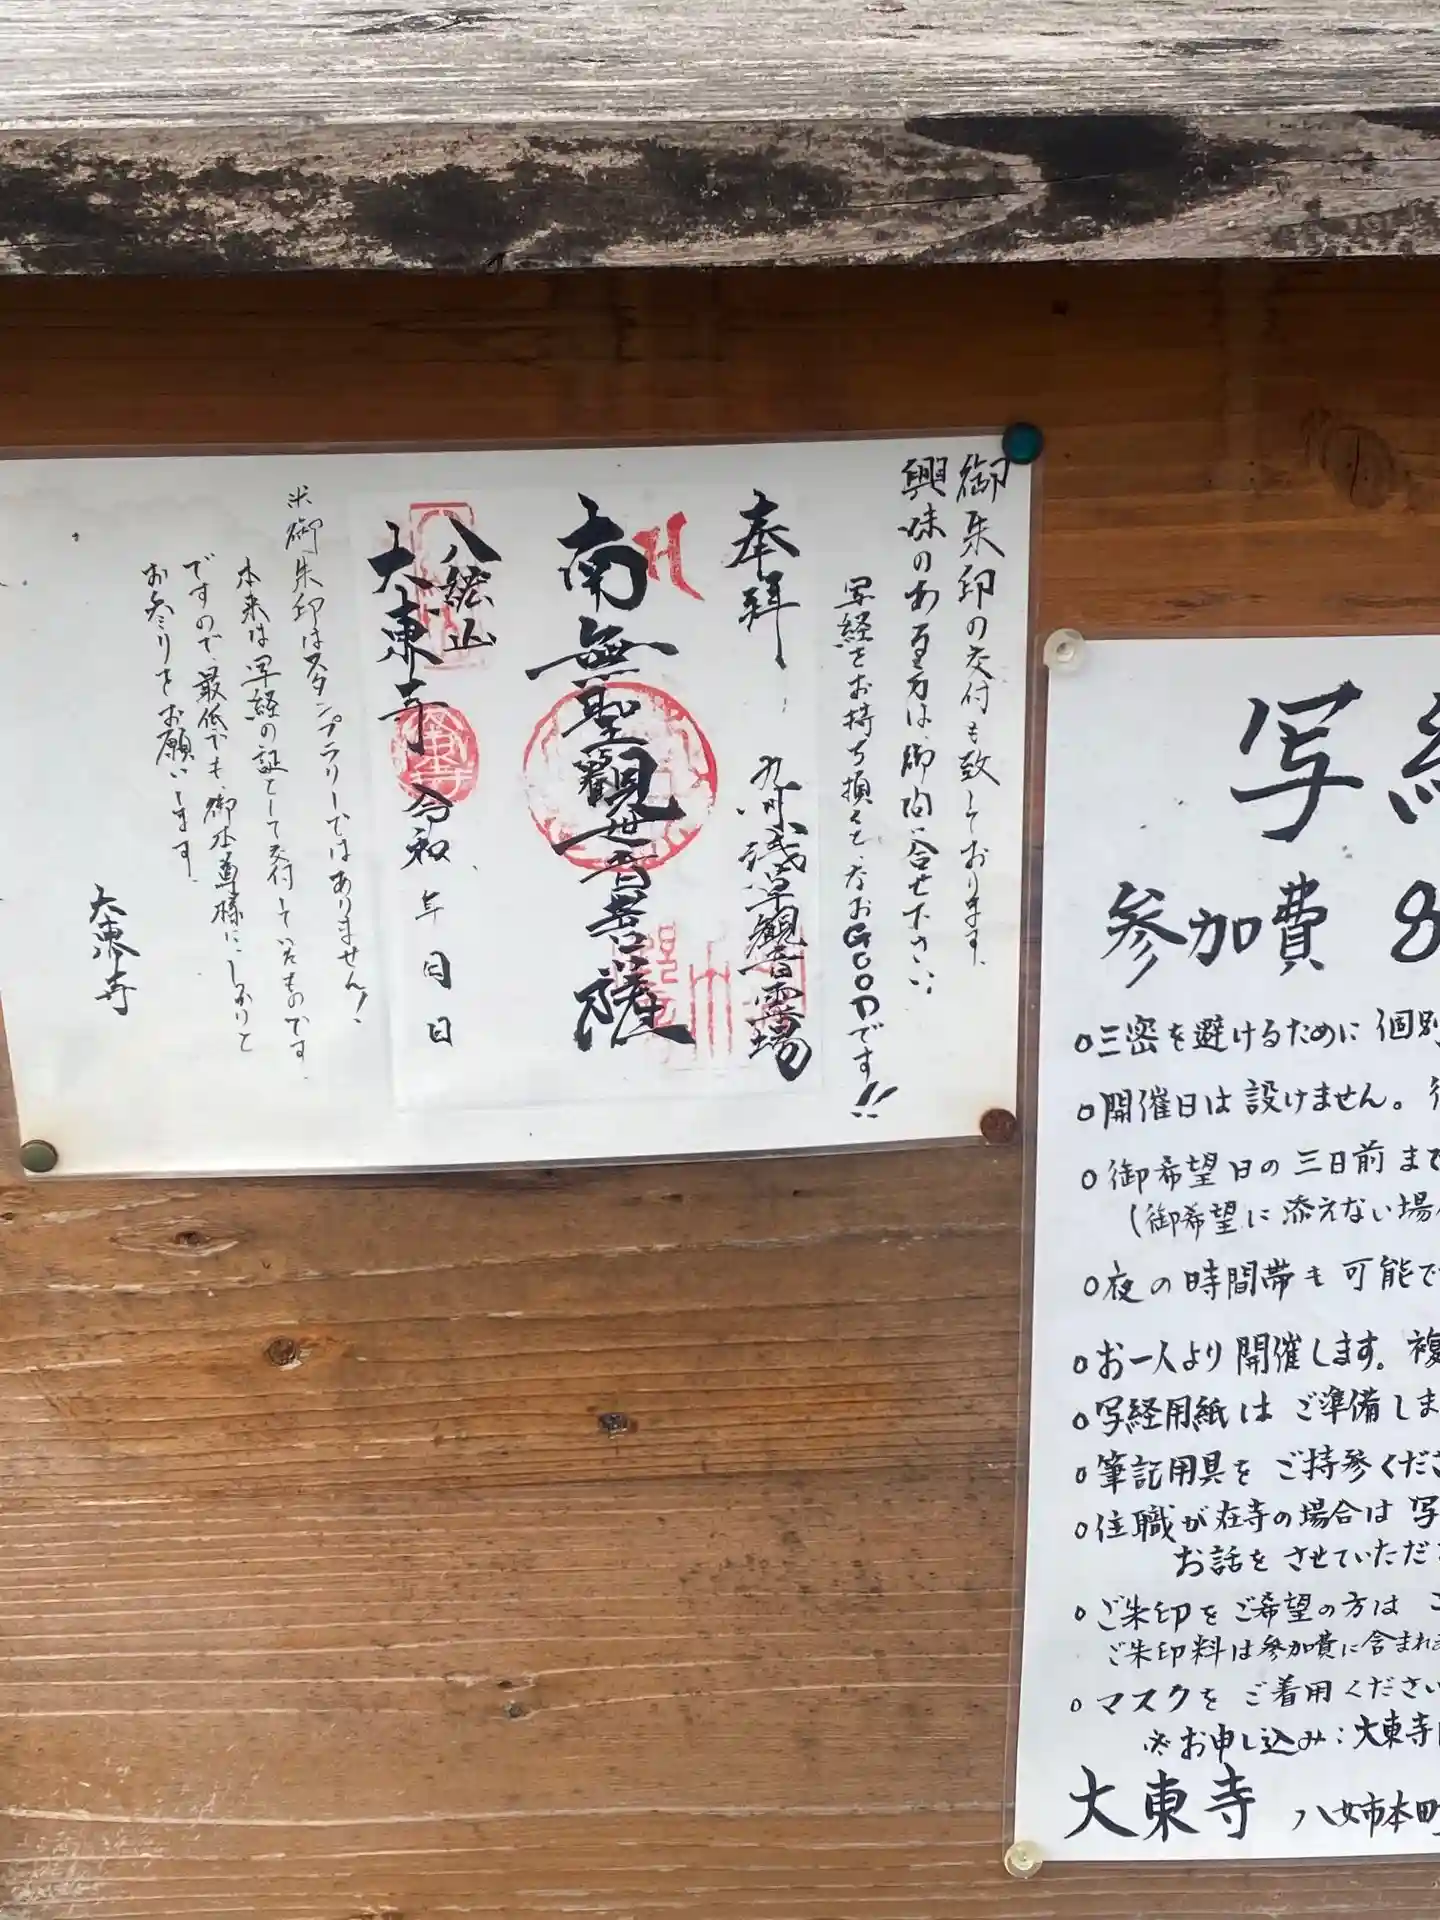 御朱印の交付も致しております。
興味のある方は、御問合せ下さい。
写経をお持ち頂くと、なおGOODです!!
奉拝
九州浅草観音霊場
南無聖観世音菩薩
八紘山
大東寺
令和 年 月 日
※御朱印はスタンプラリーではありません!
本来は写経の証として交付していたものです。
ですので、最低でも、御本尊様に、しっかりと
お参りをお願いします。
大東寺
写経
参加費 8
○三密を避けるために個別
○開催日は設けません。
○御希望日の三日前まで
(御希望に添えない場
○夜の時間帯も可能で
○お一人より開催します。複
○写経用紙はご準備しま
○筆記用具をご持参くださ
○住職が在寺の場合は写
お話をさせていただ
○ご朱印をご希望の方は
ご朱印料は参加費に含まれ
○マスクをご着用ください
※お申し込み:大東寺
大東寺 八女市本町